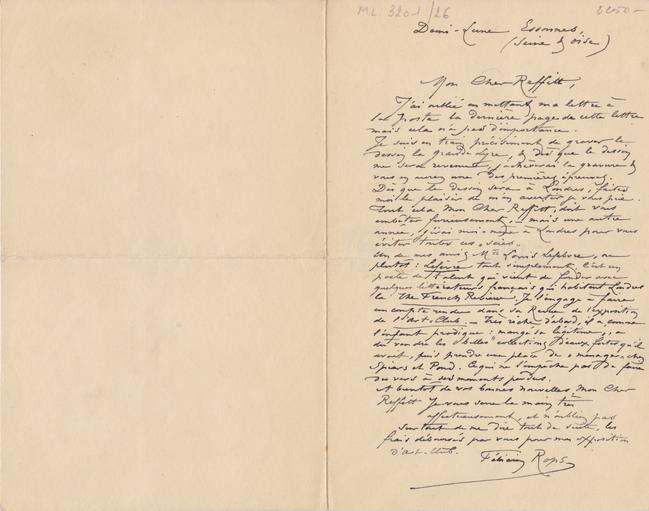 ML. 3201/26
Demi-Lune Essonnes,
(Seine & Oise)
Mon Cher Raffitt,
J'ai oublié en mettant ma lettre à
la poste la dernière page de cette lettre
mais cela n'a pas d'importance.
Je suis en train précisément de graver le
dessin la Grande Lyre, & dès que le dessin
me sera revenu, j'achèverai la gravure &
vous en aurez une des premières épreuves.
Dès que le dessin sera à Londres, faites
moi le plaisir de m'en avertir je vous prie.
Tout cela Mon Cher Raffitt, doit vous
embêter furieusement, – mais une autre
année, j'irai moi-même à Londres pour vous
éviter toutes ces scies.
Un de mes amis Mr Louis Lefebvre, ou
plutôt : Lefèvre tout simplement, c'est un
poète de talent qui vient de fonder avec
quelques littérateurs français qui habitent Londres
la "The French Review". Je l'engage à faire
un compte rendu dans sa Revue de l'exposition
de l'Art-Club. – Très riche d'abord, il a comme
l'enfant prodigue : mangé sa légitime, a
dû vendre les "belles" collections d'eaux fortes qu'il
avait, puis prendre une place de "ménager" chez
Spiers et Pond. Ce qui ne l'empêche pas de faire
des vers à ses moments perdus.
A bientôt de vos bonnes nouvelles Mon Cher
Raffitt Je vous serre la main très
affectueusement, et n'oubliez pas
surtout de me dire tout de suite, les
frais déboursés par vous pour mon exposition
d'art-club.
Félicien Rops